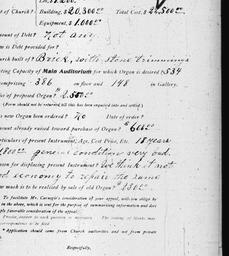 of Church? Building, $20,300.00 Total Cost, $22,500.00
Equipment, $1,000.00
ount of Debt? Not any
is Debt provided for?
urch built of? Brick, with stone trimmings
ting Capacity of Main Auditorium for which Organ is desired? 534
mprising 386 on floor and 148 in Gallery.
of proposed Organ? $2,500.00
(Form should not be returned till this has been inquired into and settled)
new Organ been ordered? No Date of order?
ount already raised toward purchase of Organ? $608.00
rticulars of present Instrument, Age, Cost Price, Etc. 18 years
general condition very bad.
son for displacing present Instrument? We think it not
d economy to repair the same
much is to be realized by sale of old Organ?
To facilitate Mr. Carnegie's consideration of your appeal, will you oblige by
in the above, sent you for the purpose of summarizing information and
favorable consideration of the appeal.
Application should come from Church authorities and not from private
Respectfully,